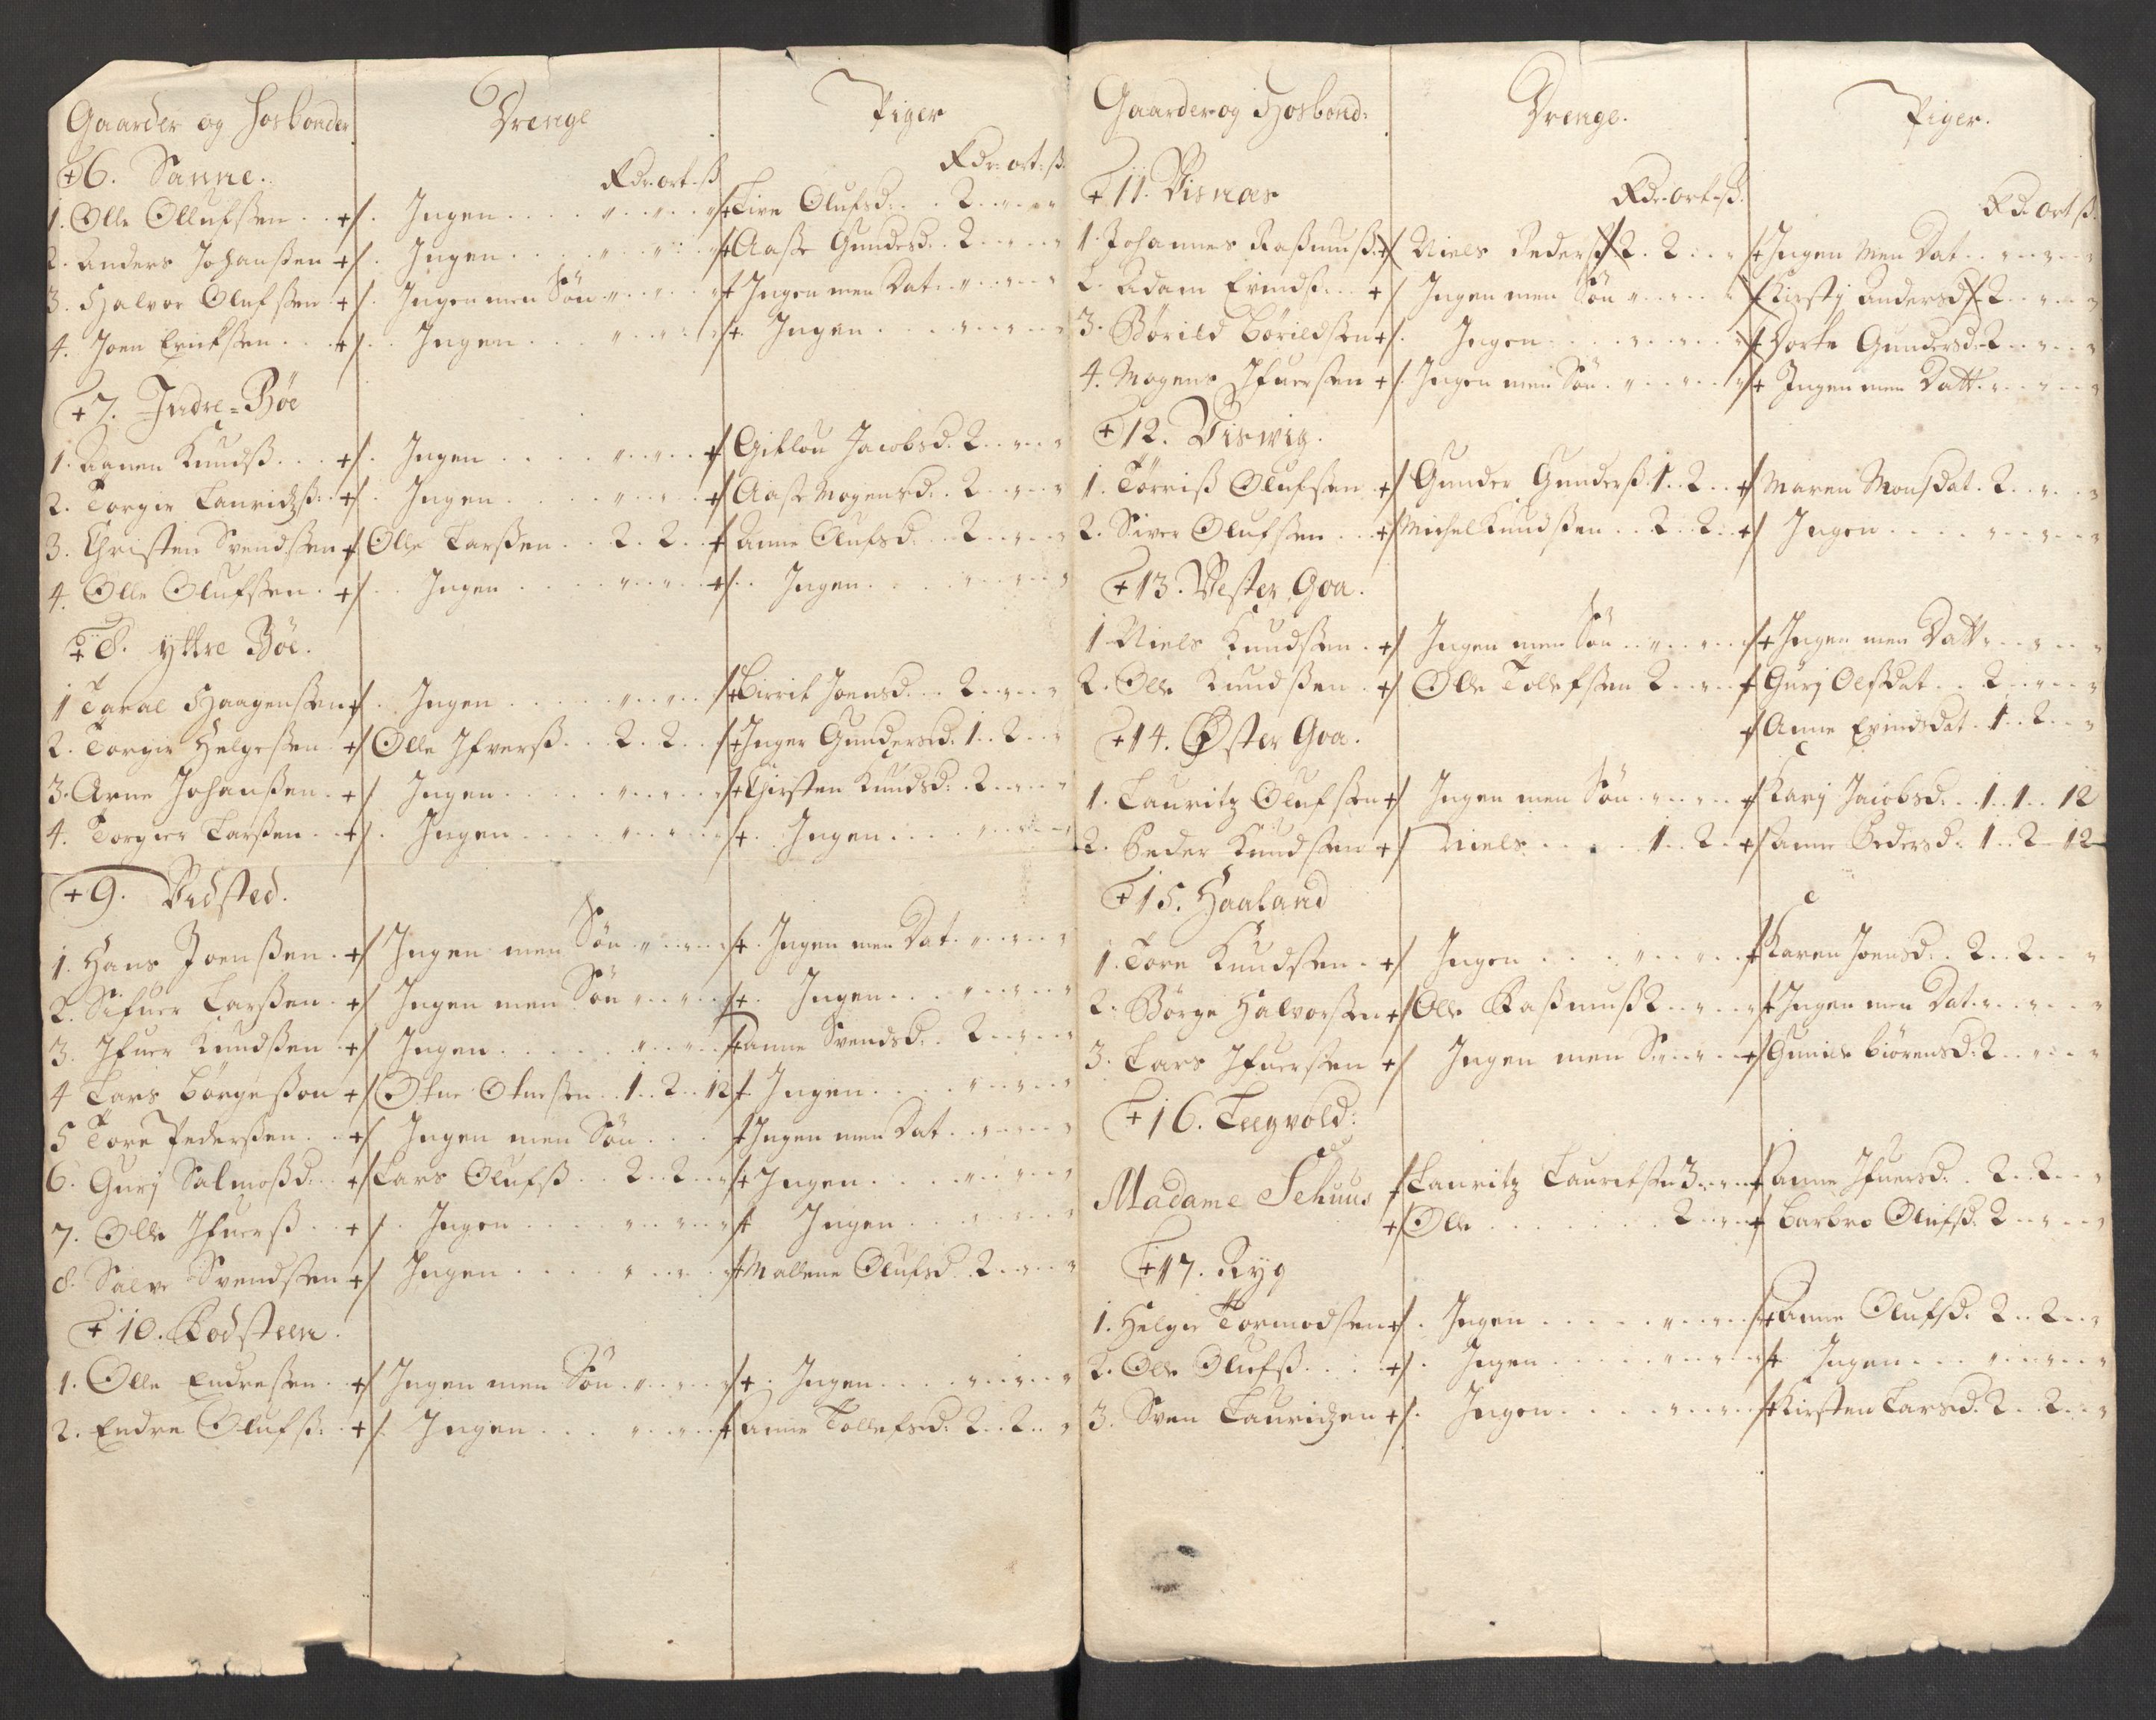 Gaarder og Hosbonder Drenge Piger
+ 6. Sanne. Rdr. ort. ß Rdr: ort: ß
1. Olle Ollufssen . . +/. Ingen . . . . " . . " . . " /+ Sire Olufsd. . . 2 . . " . . "
2. Anders Johanssen +/. Ingen . . . . " . . " . . " /+ Aasse Gundersd. . 2 . . " . . "
3. Halvor Olufssen . +/. Ingen men Søn " . . " . . " /+ Ingen men Dat . . " . . " . . "
4. Joen Erickssen . . . +/. . Ingen . . . " . . " . . " /+. Ingen . . . . " . . " . . "
+ 7. Indre-Bøe
1. Aanen Knudsß . . . +/. Ingen . . . . " . . " . . +/ Giklou Jacobsd. 2 . . " . . "
2. Torgir Lauridzß: . +/. Ingen . . . . " . . " . . +/ Aasse Mogensd. . 2 . . " . . "
3. Christen Svendssen +/ Olle Larssen . . 2 . 2 . . +/ Anne Olufsd. . . 2 . . " . . "
4. Olle Olufssen . +/. . Ingen . . . . " . . " . . +/. . Ingen . . . . " . . " . . "
+ 8. yttre Bøe.
1 Taral Haagenssen +/. Ingen . . . . " . . " . . " /+ Birrit Joensd. . . 2 . . " . . "
2. Torgir Helgessen . +/ Olle Ifversß . . 2 . . 2 . . /+ Inger Gundersd. 1 . . 2 . . "
3. Arne Johanssen . +/ Ingen . . . . " . . " . . " /+ Chirsten Knudsd: . 2 . . " . . "
4. Torgier Larssen . . +/. Ingen . . . . " . . " . . " /+. Ingen . . . . " . . " . . "
+ 9. Vidsted.
1. Hans Joenssen . +/ Ingen men Søn . " . . " . . " /+. Ingen men Dat . " . . " . . "
2. Sifuer Larssen . +/ Ingen men Søn " . . " . . " /+. Ingen . . . " . . " . . "
3. Ifuer Knudssen . +/ Ingen . . . . " . . " . . /+ anne Svendsd. . 2 . . " . . "
4 Lars Børgesson +/ Otue Otuessen . . 1 . . 2 . . 12 /+ Ingen . . . . " . . " . . "
5 Tore Pederssen . . +/ Ingen men Søn . . . /+ Ingen men Dat . . " . . " . . "
6. Gurj Salmoßd. . . +/ Lars Olufsß . . 2 . . 2 . . " /+ Ingen . . . . " . . " . . "
7. Olle Ifuersß . . +/. Ingen . . . . " . . " . . " /+ Ingen . . . " . . " . . "
8. Salve Svendssen +/ Ingen . . . . " . . " . . " /+ Mallene Olufsd. . 2 . . " . . "
+ 10. Rodsteen.
1. Olle Endressen . . +/ Ingen men Søn . " . . " . . " /+. Ingen . . . . " . . " . . "
2. Endre Olufsß: . +/. Ingen . . . " . . " . . /+ anne Tollefsd. 2 . . 2 . . "
Gaarder og Hosbond: Drenge. Piger.
+ 11. Visnæs Rdr. ort. ß. Rd. ort ß.
1. Johannes Rassmusß. +/ Niels Pedersß 2 . 2 . . " /+ Ingen Men Dat . . " . . " . . "
2. Adam Evindsß. . . +/ Ingen men Søn " . . " . . " /+ Kirstj Andersd. 2 . . " . . "
3. Børild Børildssen +/. Ingen . . . . " . . " . . " /+ Dorte Gundersd. 2 . . " . . "
4. Mogens Ifuerssen +/. Ingen men Søn . " . . " . . " /+ Ingen men Datt . " . . " . . "
+ 12. Viswig.
1. Torriß Olufssen . +/ Gunder Gundersß. 1 . . 2 . . +/ Maren Monsdat . 2 . . " . . "
2. Siver Olufssen . . . +/ Michel Knudssen . . 2 . . 2 . . +/ Ingen . . . . " . . " . . "
+ 13. Vester Goa.
1 Niels Knudssen . +/ Ingen men Søn . . " . . " . . " /+ Ingen men Datt . " . . " . . "
2. Olle Knudssen . +/ Olle Tollefssen 2 . . " . . +/ Gurj Olssdat . . 2 . . " . . "
+/ Anne Evindsdat . 1 . . 2 . . "
+ 14. Øster Goa.
1. Lauritz Olufssen +/ Ingen men Søn . " . . " . . +/ Karj Jacobsd. . 1 . . 1 . . 12
2. Peder Knudssen +/ Niels . . . . 1 . . 2 . . +/ anne Pedersd. 1 . . 2 . . 12
+ 15. Haaland
1. Tore Knudssen . +/ Ingen . . . . " . . " . . /+ Karen Joensd. . 2 . . 2 . . "
2. Børge Halvorssen +/ Olle Rassmusß 2 . . " . . " /+ Ingen men Dat . " . . " . . "
3. Lars Ifuerssen +/ Ingen men S. " . . " . . +/ Gunild Biørensd. 2 . . " . . "
+ 16. Teegvold:
Madame Schuus +/ Lauritz Lauritssen 3 . . " . . +/ anne Ifuersd. . 2 . . 2 . . "
+/ Olle . . . . . . 2 . . " . . +/ Barbro Olufsd. 2 . . " . . "
+ 17. Ryg
1. Helgie Tormodssen +/. Ingen . . . . " . . " . . " /+ Anne Olufsd. 2 . . 2 . . "
2. Olle Olufsß . . . +/. Ingen . . . . " . . " . . " /+ Ingen . . . " . . " . . "
3. Sven Lauridzen +/. Ingen . . . . " . . " . . " /+ Kirsten Larsd. 2 . . 2 . . "